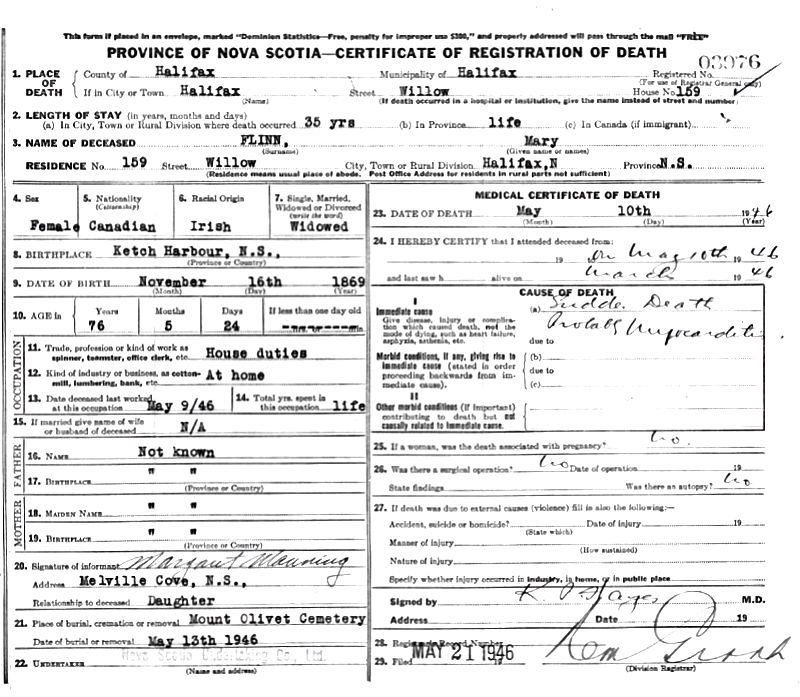 This form if placed in an envelope, marked "Dominion Statistics—Free, penalty for improper use $300," and properly addressed will pass through the mail "FREE"
PROVINCE OF NOVA SCOTIA—CERTIFICATE OF REGISTRATION OF DEATH
03976
1. PLACE OF DEATH County of Halifax Municipality of Halifax Registered No.
(For use of Registrar General only)
If in City or Town Halifax Street Willow House No 159
(Name) (If death occurred in a hospital or institution, give the name instead of street and number)
2. LENGTH OF STAY (in years, months and days)
(a) In City, Town or Rural Division where death occurred 35 yrs (b) In Province life (c) In Canada (if immigrant)
3. NAME OF DECEASED FLINN, Mary
(Surname) (Given name or names)
RESIDENCE No. 159 Street Willow City, Town or Rural Division Halifax,N Province N.S.
(Residence means usual place of abode. Post Office Address for residents in rural parts not sufficient)
4. Sex Female
5. Nationality (Citizenship) Canadian
6. Racial Origin Irish
7. Single, Married, Widowed or Divorced (write the word) Widowed
8. BIRTHPLACE Ketch Harbour, N.S.,
(Province or Country)
9. DATE OF BIRTH November 16th 1869
(Month) (Day) (Year)
10. AGE IN Years 76 Months 5 Days 24 If less than one day old
OCCUPATION
11. Trade, profession or kind of work as spinner, teamster, office clerk, etc. House duties
12. Kind of industry or business, as cotton-mill, lumbering, bank, etc. At home
13. Date deceased last worked at this occupation May 9/46
14. Total yrs. spent in this occupation life
15. If married give name of wife or husband of deceased N/A
FATHER
16. NAME Not known
17. BIRTHPLACE " "
(Province or Country)
MOTHER
18. MAIDEN NAME " "
19. BIRTHPLACE " "
(Province or Country)
20. Signature of informant Margaret Manning
Address Melville Cove, N.S.,
Relationship to deceased Daughter
21. Place of burial, cremation or removal Mount Olivet Cemetery
Date of burial or removal May 13th 1946
22. UNDERTAKER Nova Scotia Undertaking Co., Ltd.
(Name and address)
MEDICAL CERTIFICATE OF DEATH
23. DATE OF DEATH May 10th 1946
(Month) (Day) (Year)
24. I HEREBY CERTIFY that I attended deceased from:
19 on May 10th 1946
and last saw h alive on March 1946
CAUSE OF DEATH
I
Immediate cause
Give disease, injury or complication which caused death, not the mode of dying, such as heart failure, asphyxia, asthenia, etc.
(a) Sudden Death
Probably Myocarditis
due to
Morbid conditions, if any, giving rise to immediate cause (stated in order proceeding backwards from immediate cause).
(b)
due to
(c)
II
Other morbid conditions (if important) contributing to death but not causally related to immediate cause.
25. If a woman, was the death associated with pregnancy? No.
26. Was there a surgical operation? No Date of operation 19
State findings Was there an autopsy? No
27. If death was due to external causes (violence) fill in also the following:—
Accident, suicide or homicide? Date of injury 19
(State which)
Manner of injury
(How sustained)
Nature of injury
Specify whether injury occurred in industry, in home, or in public place
Signed by M.D.
Address Date 19
28. Registrar's Record Number
29. Filed MAY 21 1946 19
(Division Registrar)